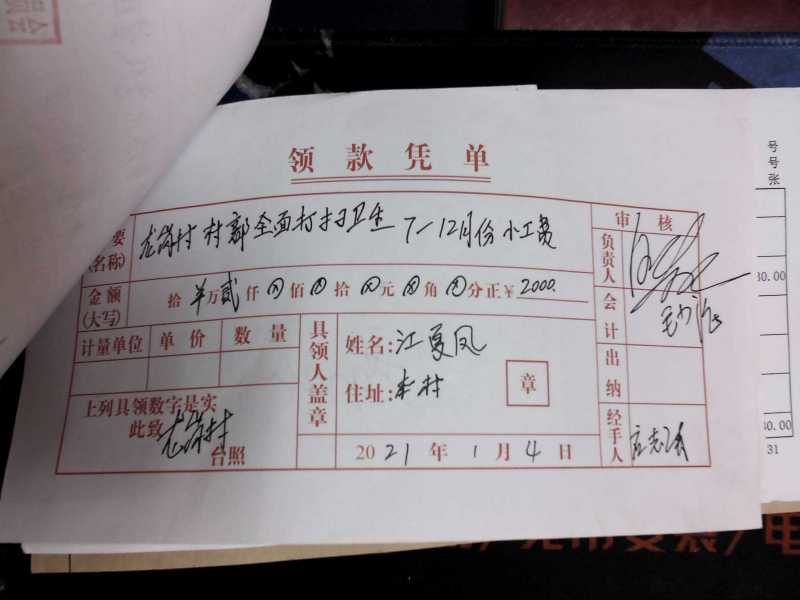 领款凭单
要
(名称)
龙岗村 村部全面打扫卫生 7-12月份小工费
审核
负责人
金额
(大写)
拾 万贰仟 佰 拾 元 角 分正¥2000.
会计
计量单位 单价 数量
具领人盖章
姓名:江夏凤
住址:本村
章
出纳
上列具领数字是实
此致
龙岗村
台照
2021年1月4日
经手人
号
号
张
30.00
30.00
31